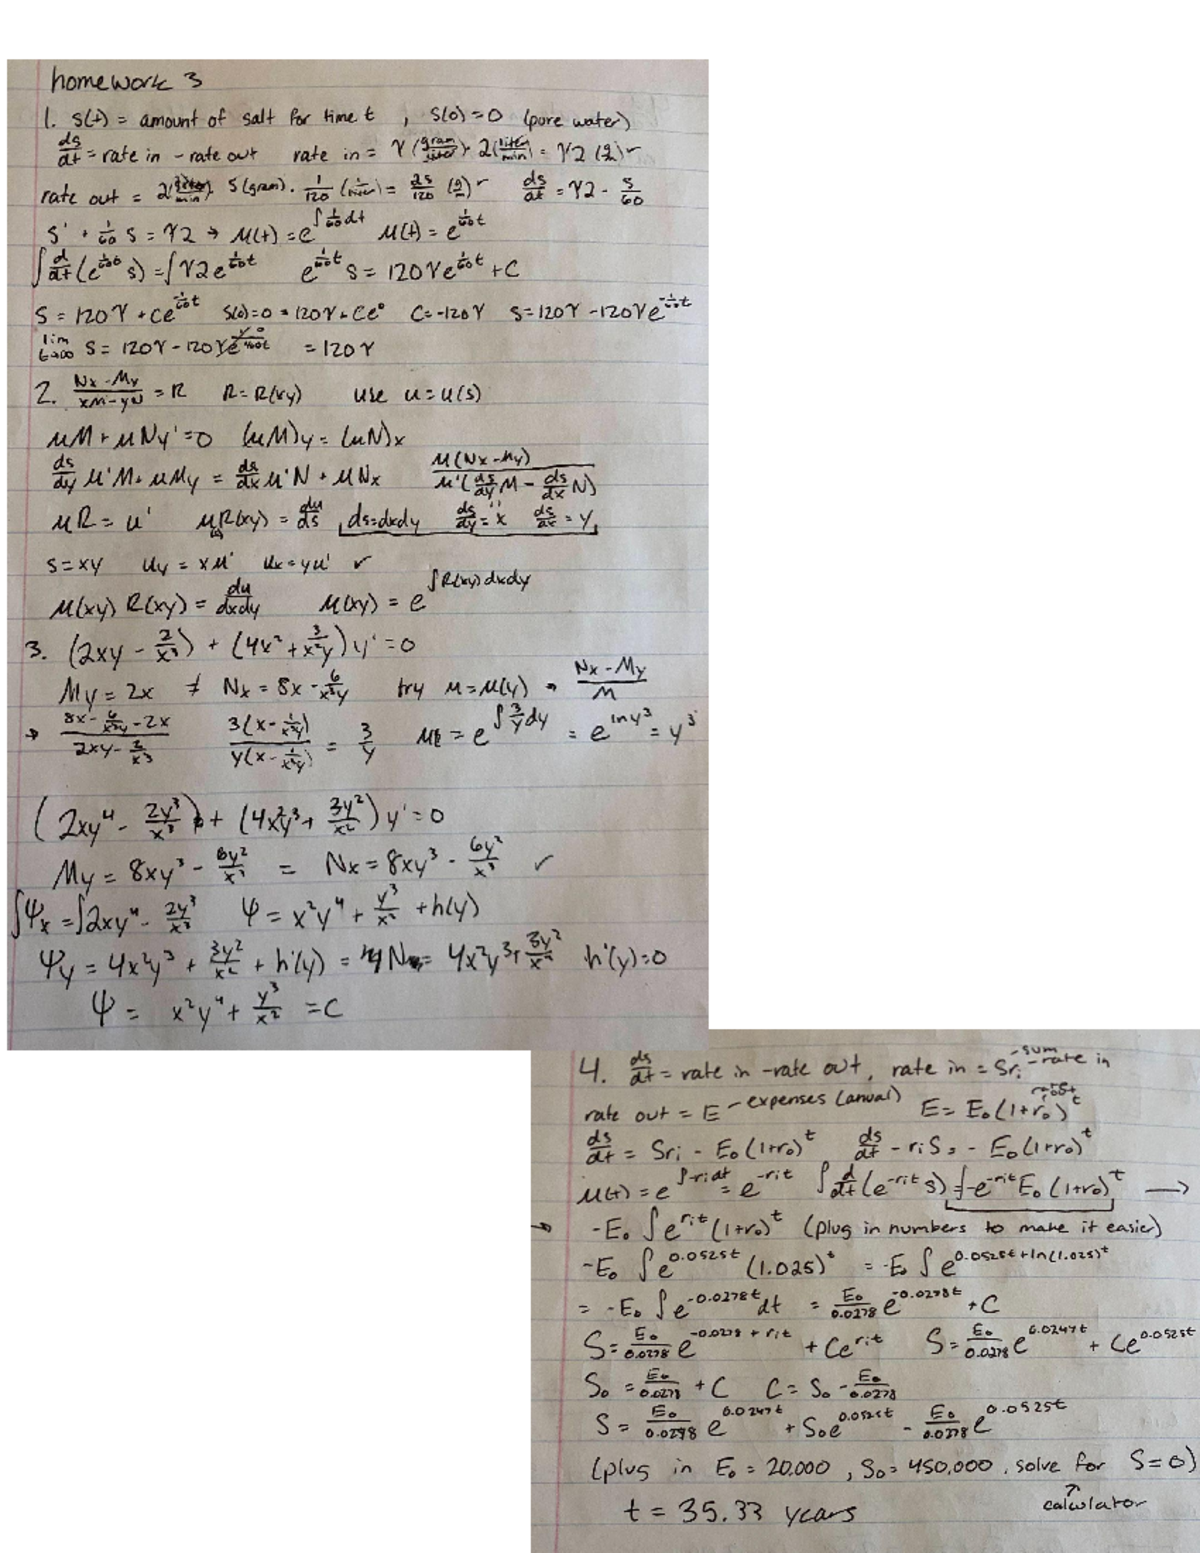 homework 3
1. S(t) = amount of salt for time t , S(0) = 0 (pure water)
ds/dt = rate in - rate out rate in = γ (gram/liter) · 2 (liter/min) = γ2 (g/) ✓
rate out = 2 (liter/min) · S (gram) · 1/120 (1/liter) = 2s/120 (g/) ✓ ds/dt = γ2 - s/60
S' + 1/60 S = γ2 → μ(t) = e^∫1/60 dt μ(t) = e^1/60 t
∫ d/dt (e^1/60 t s) = ∫ γ2e^1/60 t e^1/60 t s = 120γe^1/60 t + C
S = 120γ + ce^-1/60 t S(0) = 0 = 120γ + Ce° C = -120γ S = 120γ - 120γe^-1/60 t
lim t→∞ S = 120γ - 120γe = 120γ
2. Nx - My / xM - yN = R R = R(xy) use u = u(s)
μM + μNy' = 0 (μM)y = (μN)x
ds/dy μ'M + μMy = ds/dx μ'N + μNx μ(Nx - My) / μ'(ds/dy M - ds/dx N)
μR = μ' μR(xy) = du/ds ds = dxdy ds/dy = x ds/dx = y
S = xy uy = xu' ux = yu' ✓
μ(xy) R(xy) = du/dxdy μ(xy) = e^∫R(xy) dxdy
3. (2xy - 2/x³) + (4x² + 3/x²y) y' = 0
My = 2x ≠ Nx = 8x - 6/x³y try μ = μ(y) → Nx - My / M
→ 8x - 6/x³y - 2x / 2xy - 2/x³ 3(x - 1/x³y) / y(x - 1/x³y) = 3/y μ = e^∫3/y dy = e^ln y³ = y³
(2xy⁴ - 2y³/x³) + (4x²y³ + 3y²/x²) y' = 0
My = 8xy³ - 6y²/x³ = Nx = 8xy³ - 6y²/x³ ✓
∫Ψx = ∫2xy⁴ - 2y³/x³ Ψ = x²y⁴ + y³/x² + h(y)
Ψy = 4x²y³ + 3y²/x² + h'(y) = N = 4x²y³ + 3y²/x² h'(y) = 0
Ψ = x²y⁴ + y³/x² = C
4. ds/dt = rate in - rate out, rate in = Sri - sum - rate in
rate out = E - expenses (anual) E = E₀(1+r₀)^t
ds/dt = Sri - E₀(1+r₀)^t ds/dt - riS = - E₀(1+r₀)^t
μ(t) = e^∫-ri dt = e^-rit ∫ d/dt (e^-rit s) = ∫-e^-rit E₀(1+r₀)^t →
→ -E₀ ∫ e^rit (1+r₀)^t (plug in numbers to make it easier)
-E₀ ∫ e^0.0525t (1.025)^t = -E₀ ∫ e^0.0525t + ln(1.025)^t
= -E₀ ∫ e^-0.0278t dt = E₀/0.0278 e^-0.0278t + C
S = E₀/0.0278 e^-0.0278 + rit + Ce^rit S = E₀/0.0278 e^0.0247t + Ce^0.0525t
S₀ = E₀/0.0278 + C C = S₀ - E₀/0.0278
S = E₀/0.0278 e^0.0247t + S₀e^0.0525t - E₀/0.0278 e^0.0525t
(plug in E₀ = 20.000 , S₀ = 450,000 , solve for S = 0)
↑ calculator
t = 35.33 years